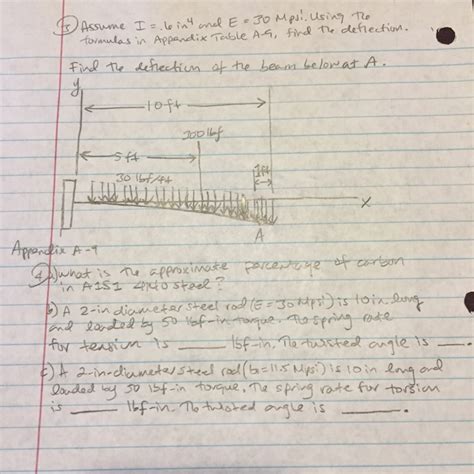 3) Assume I = .6 in⁴ and E = 30 Mpsi. Using The
formulas in Appendix Table A-9, find The deflection.
Find The deflection of the beam below at A.
y
10 ft
200 lbf
5 ft
1ft
30 lbf/ft
x
A
Appendix A-9
4 a) what is the approximate percentage of carbon
in A1S1 4140 steel?
b) A 2-in diameter steel rod (E = 30 Mpsi) is 10 in. long
and loaded by 50 lbf-in torque. The spring rate
for tension is ____ lbf-in. The twisted angle is ____.
c) A 2-in-diameter steel rod (G = 11.5 Mpsi) is 10 in long and
loaded by 50 lbf-in torque. The spring rate for torsion
is ____ lbf-in. The twisted angle is ____.